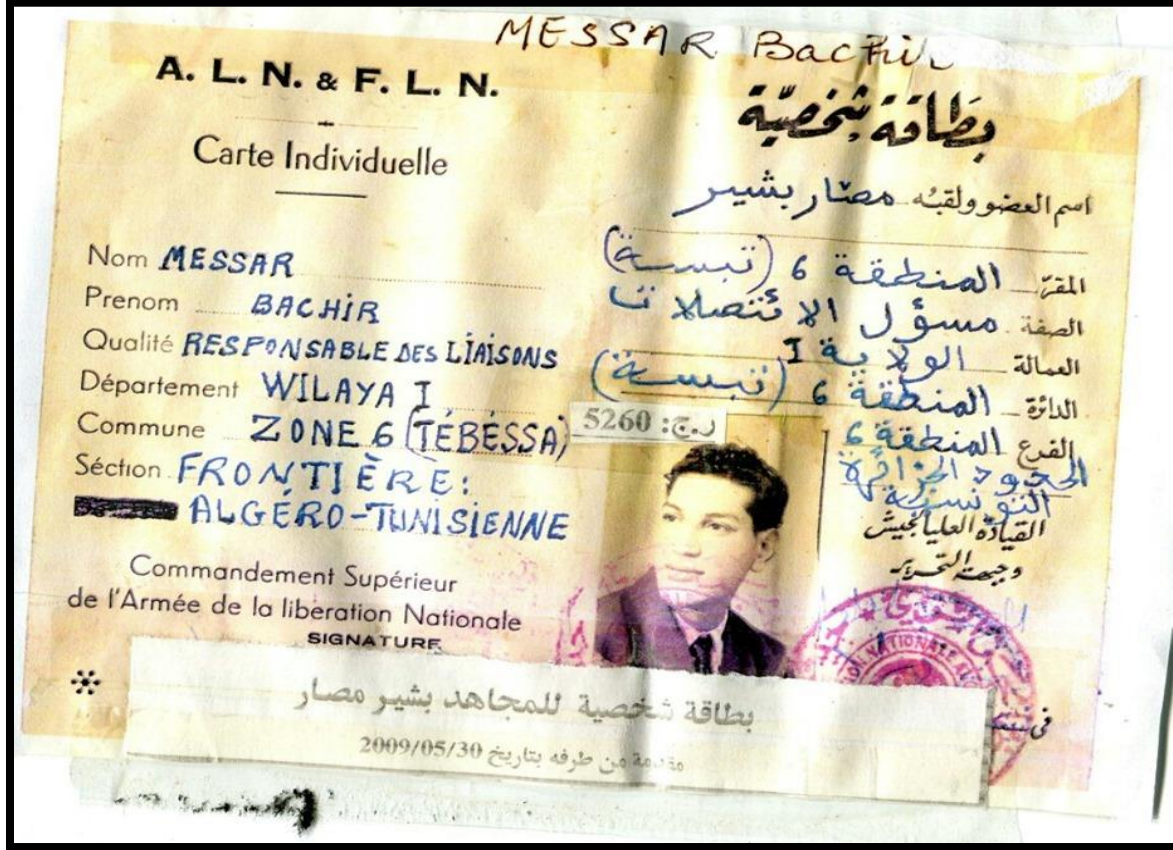 MESSAR Bachir
A. L. N. & F. L. N.
Carte Individuelle
Nom MESSAR
Prenom BACHiR
Qualité RESPONSABLE DES LiAiSONS
Département WILAYA I
Commune ZONE 6 (TÉBÉSSA)
Séction FRONTIÈRE:
ALGÉRO-TUNISIENNE
Commandement Supérieur
de l'Armée de la libération Nationale
SIGNATURE
بطاقة شخصيّة
اسم العضو ولقبُه مصّار بشير
المقرّ المنطقة 6 (تبسة)
الصفة مسؤل الإتصلات
العمالة الولاية I
الدائرة المنطقة 6 (تبسة)
الفرع المنطقة 6
الحدود الجزائرية
التونسية
القيادة العليا لجيش
وجبهة التحرير
ر.ج: 5260
NATIONALE
في
بطاقة شخصية للمجاهد بشير مصار
مقدمة من طرفه بتاريخ 2009/05/30